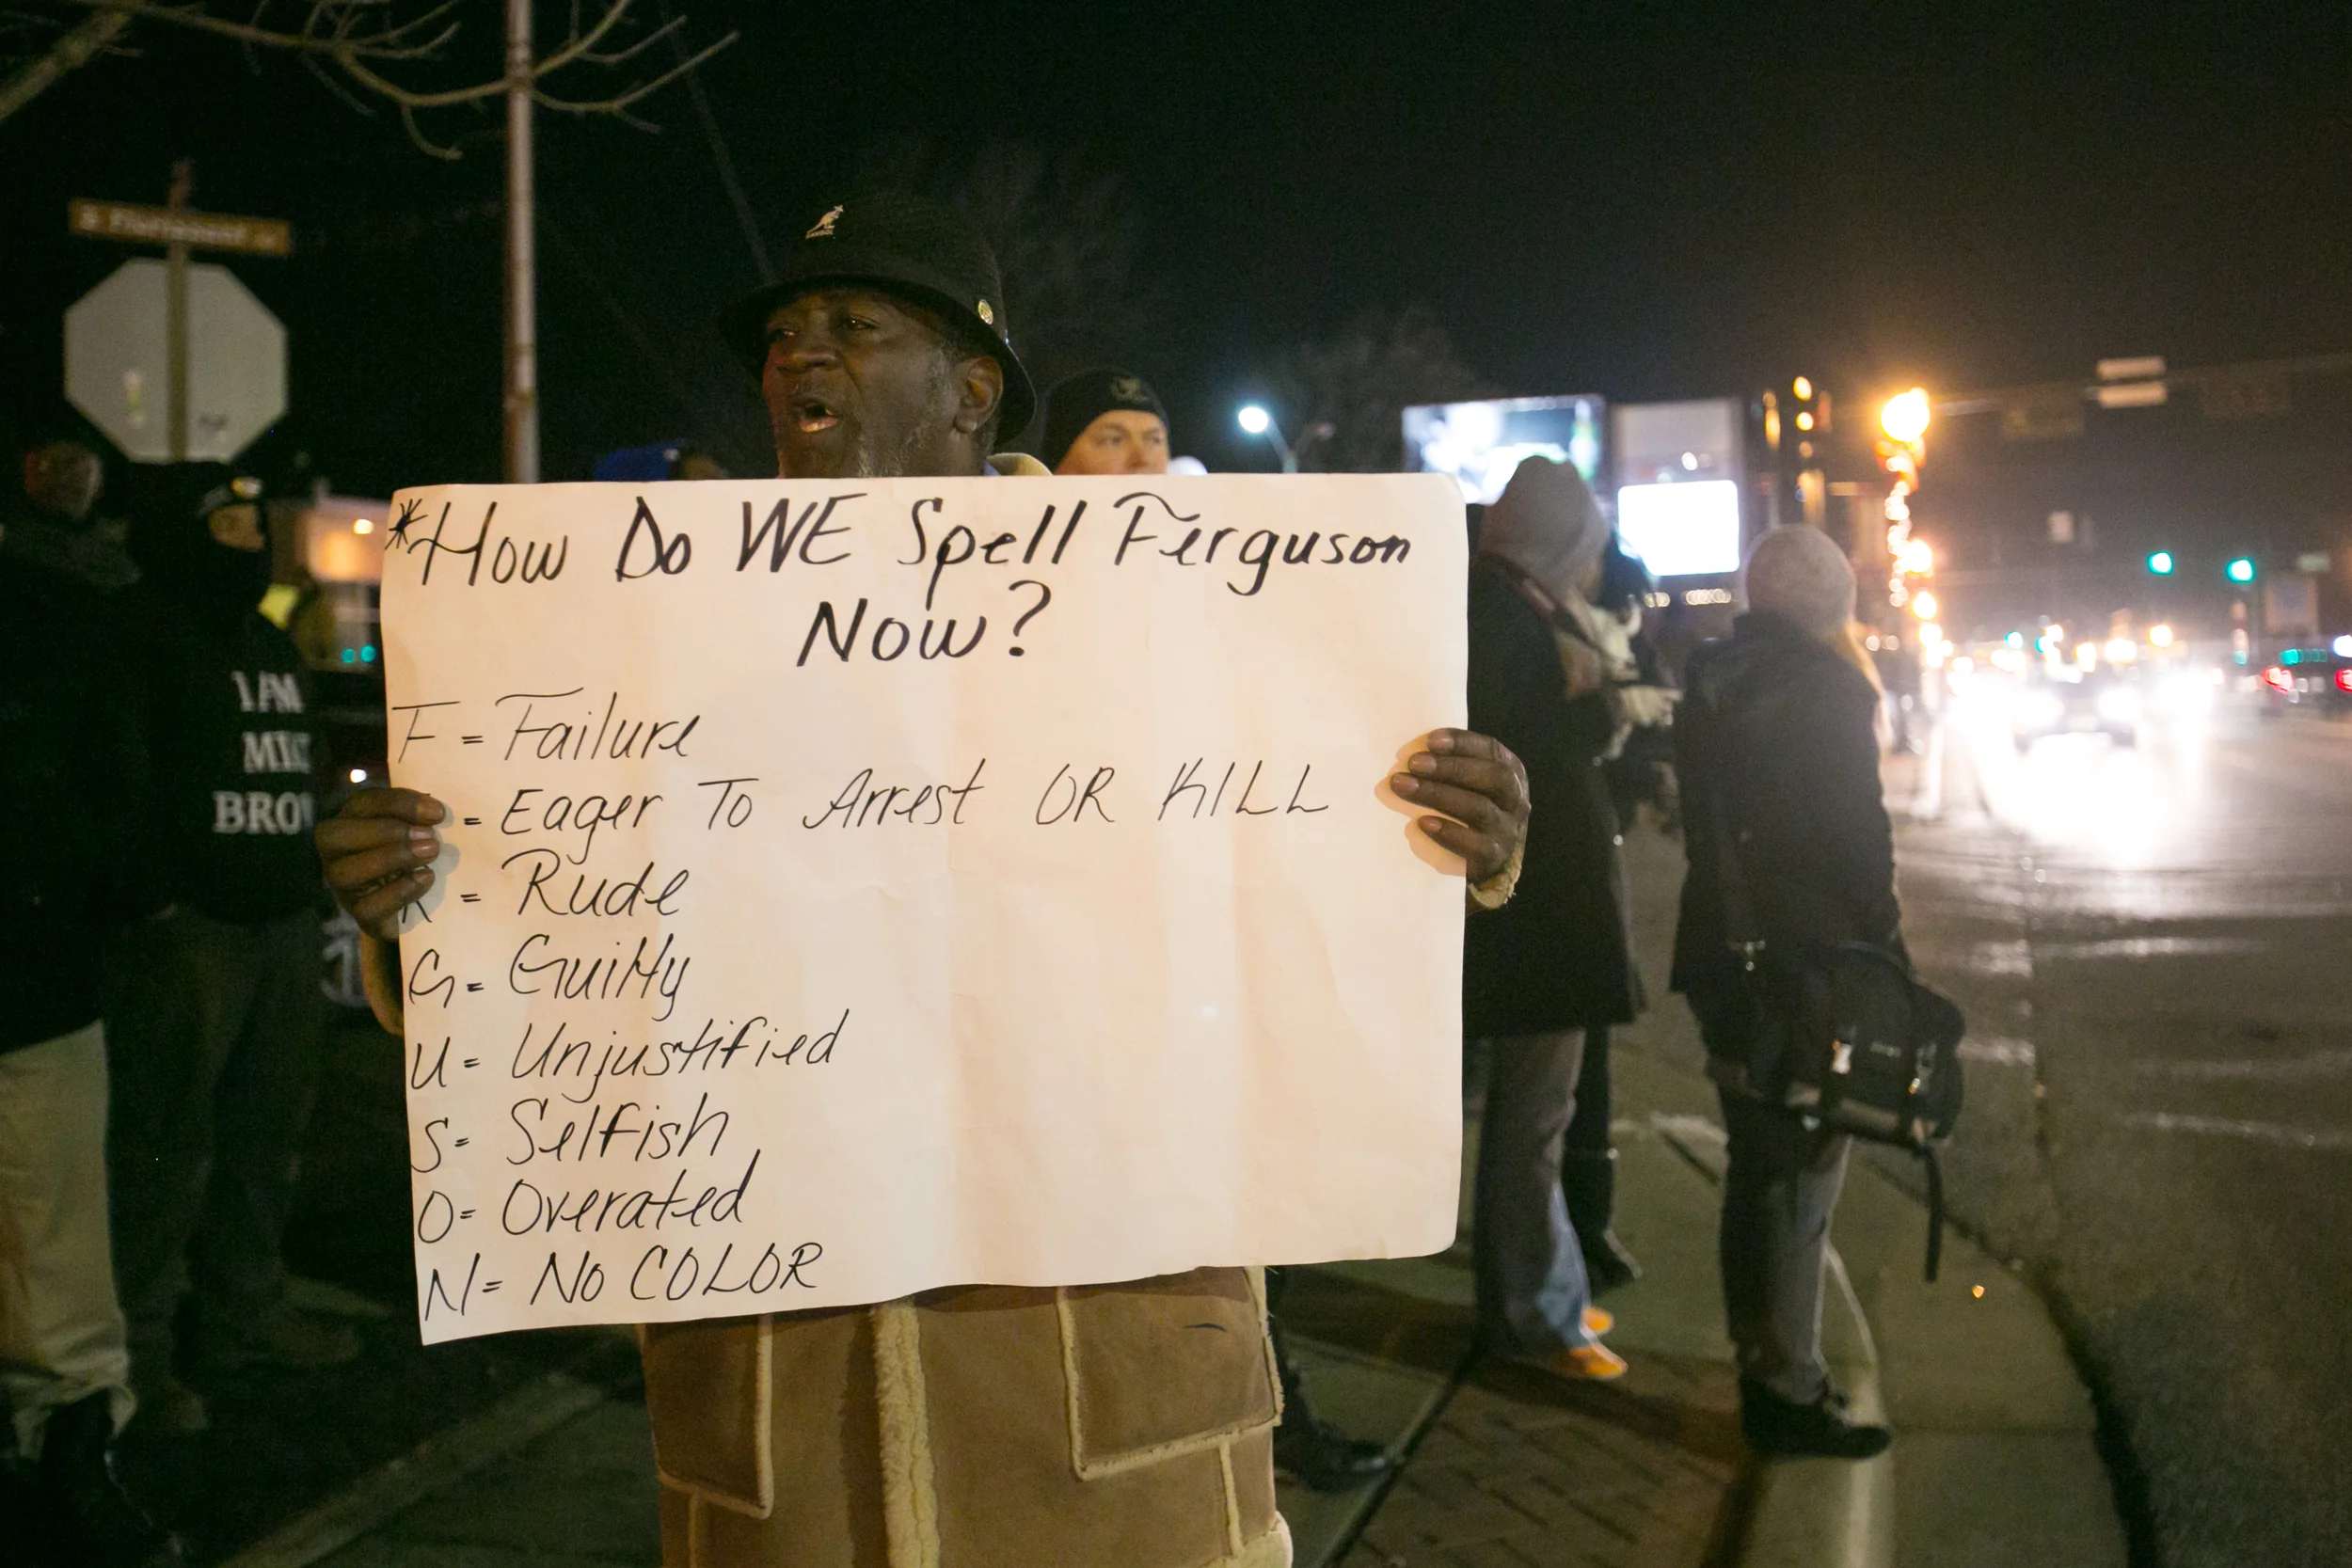 KANGOL
*How Do WE Spell Ferguson
Now?
F = Failure
= Eager To Arrest OR KILL
R = Rude
G = Guilty
U = Unjustified
S = Selfish
O = Overated
N = No COLOR
I AM
MIKE
BROW